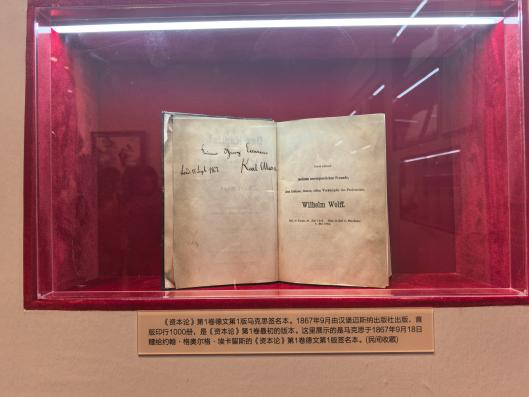 Karl Marx
Wilhelm Wolff.
《资本论》第1卷德文第1版马克思签名本。1867年9月由汉堡迈斯纳出版社出版,首
版印行1000册,是《资本论》第1卷最初的版本。这里展示的是马克思于1867年9月18日
赠给约翰·格奥尔格·埃卡留斯的《资本论》第1卷德文第1版签名本。(民间收藏)